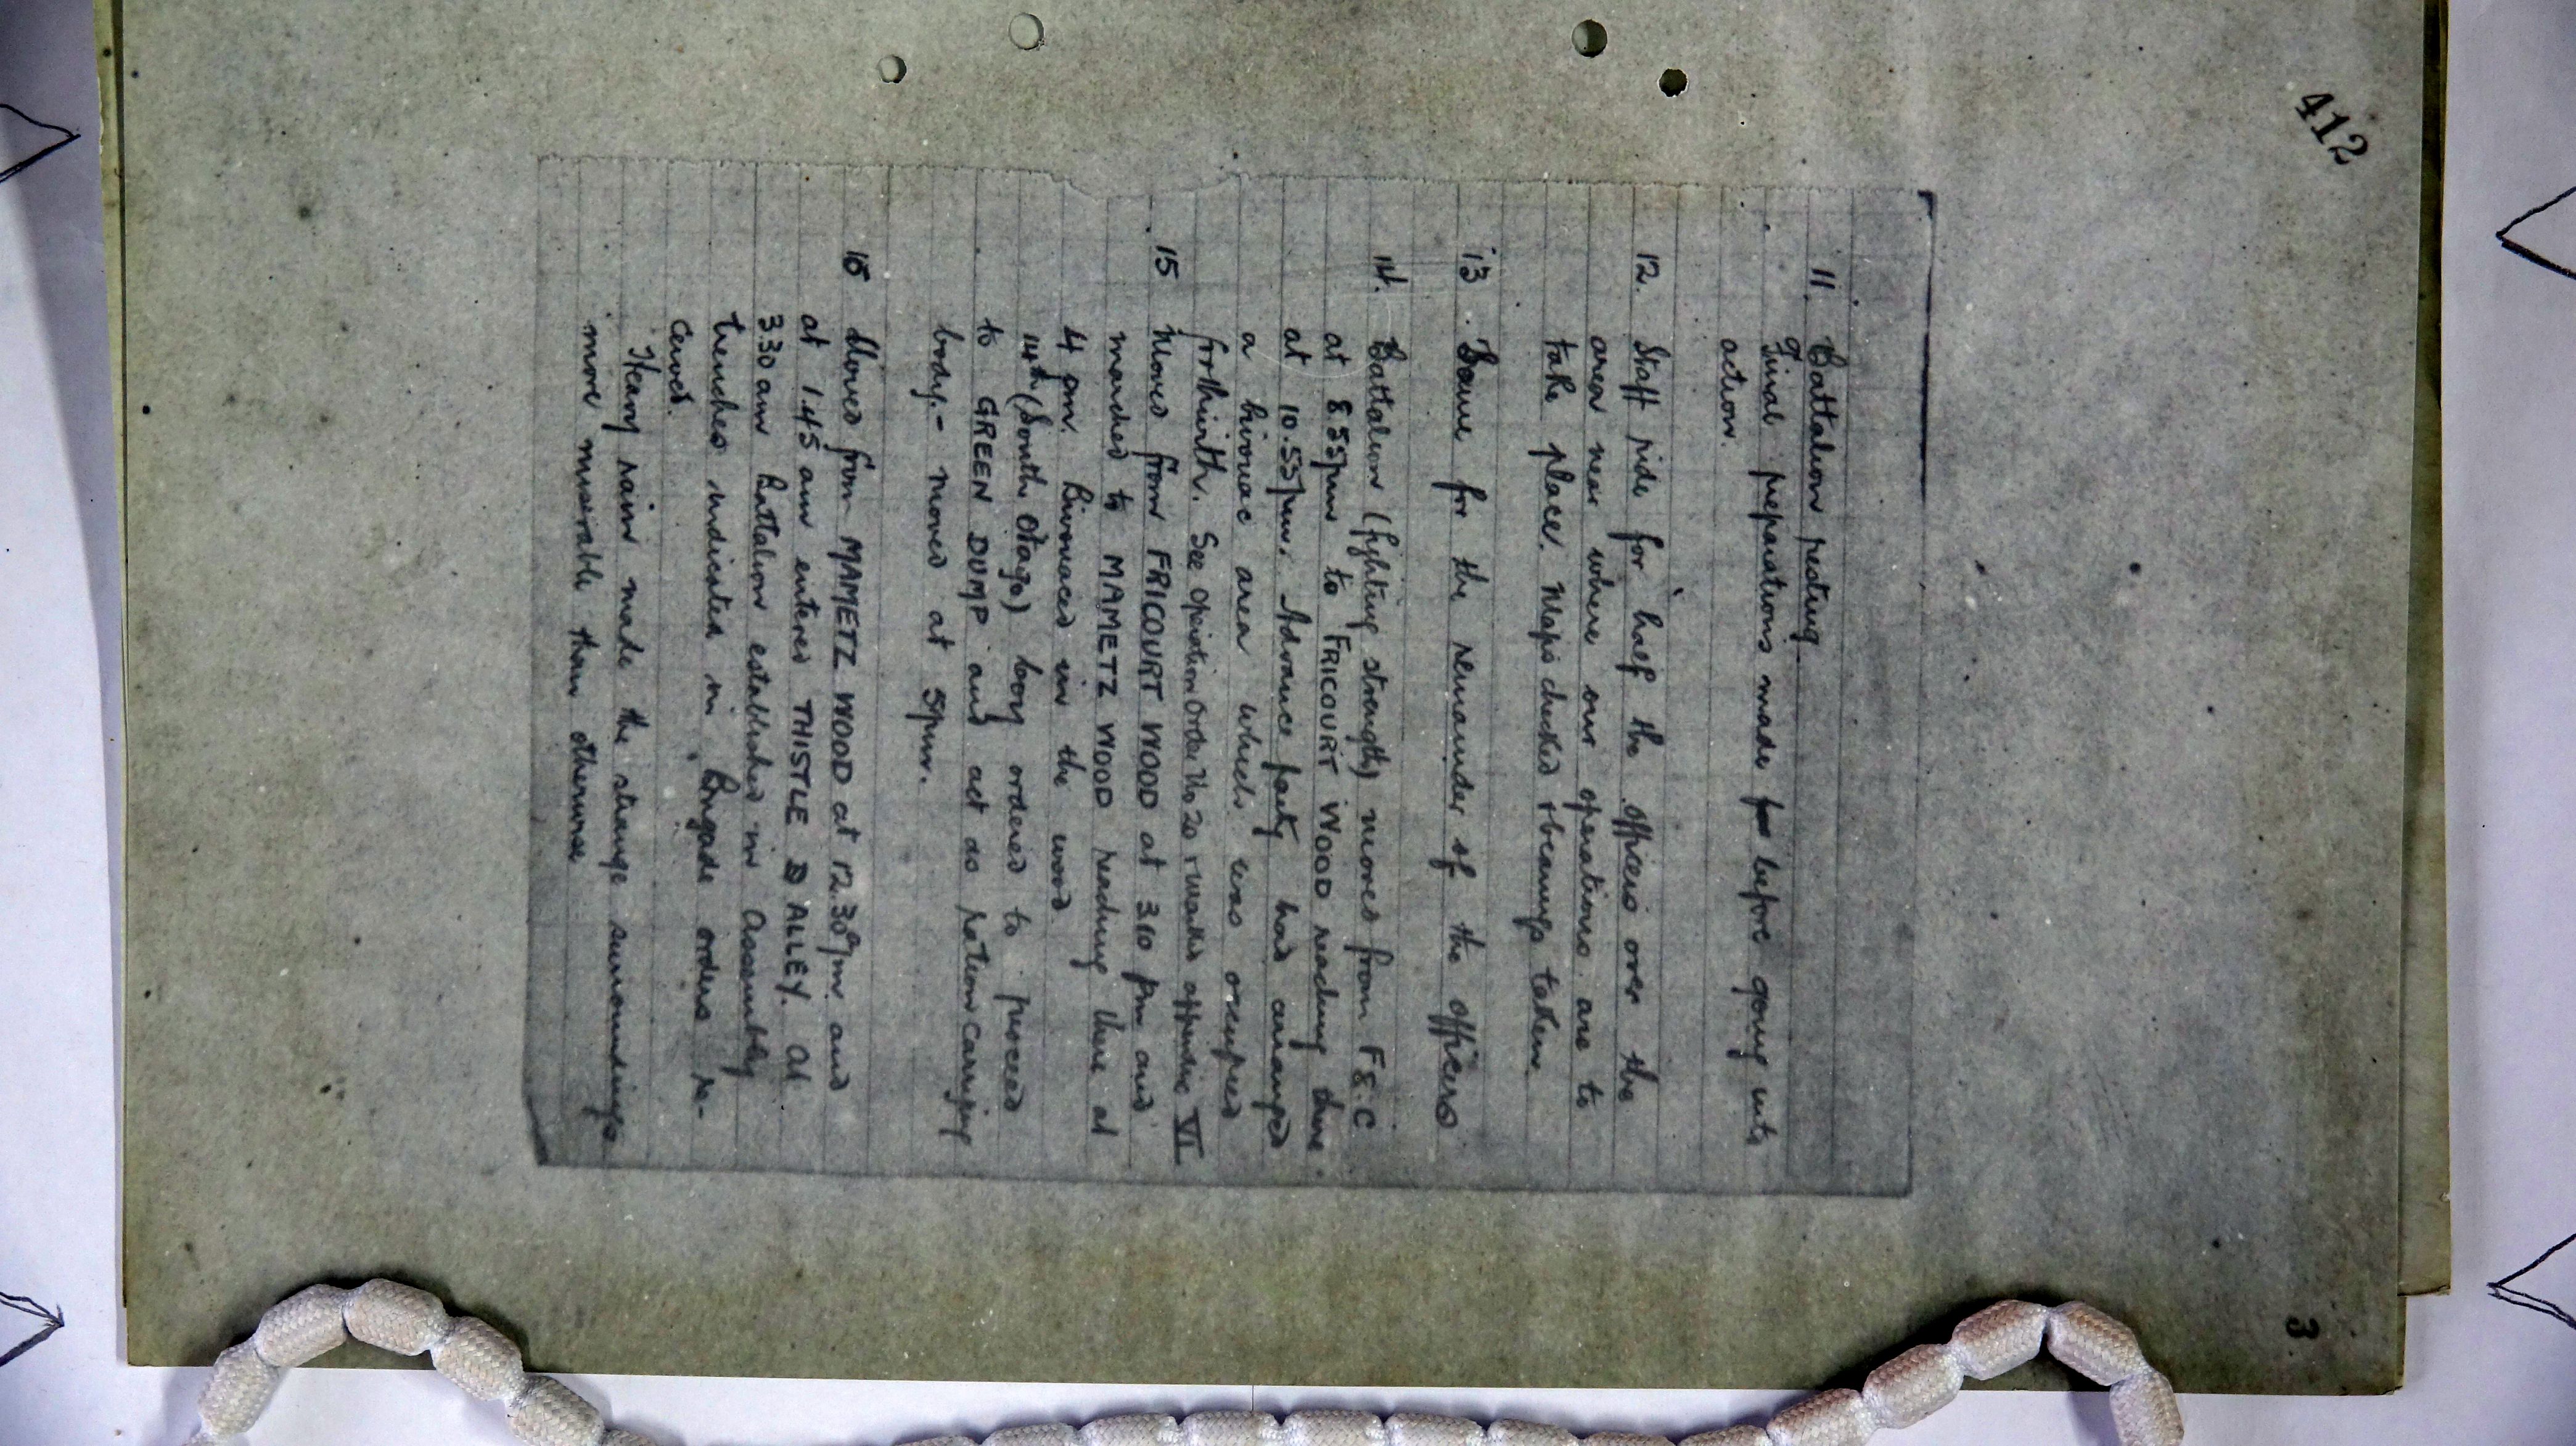 412
3
11. Battalion resting.
Final preparations made before going into
action.
12. Staff ride for half the officers over the
area near where our operations are to
take place. Maps checked & bearings taken
13. Same for the remainder of the officers
14. Battalion (fighting strength) moved from F8.C
at 8.55pm to FRICOURT WOOD reaching there
at 10.55pm. Advance party had arranged
a bivouac area which was occupied
forthwith. See Operation Order No 20 appendix VI
15 Moved from FRICOURT WOOD at 3.10 pm and
marched to MAMETZ WOOD reaching there at
4 pm. Bivouaced in the wood
14th (South Otago) Coy ordered to proceed
to GREEN DUMP and act as ration carrying
body. - moved at 5pm.
16 Moved from MAMETZ WOOD at 12.30 and
at 1.45 am entered THISTLE ALLEY. At
3.30 am Battalion established in Assembly
trenches indicated in Brigade orders re-
ceived.
Heavy rain made the strange surroundings
more miserable than otherwise